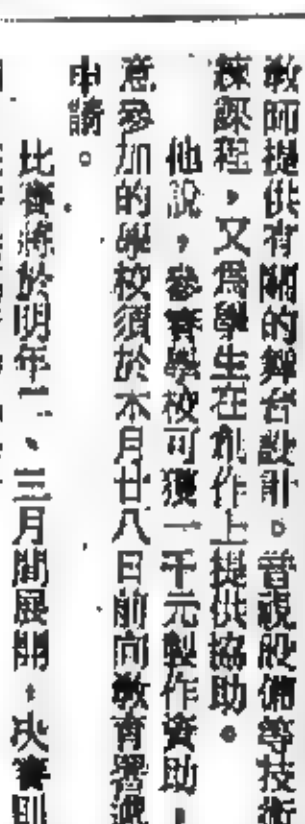 教師提供有關的舞台設計。音視設備等技術
練課程，又為學生在創作上提供協助。
他說，參賽學校可獲一千元製作資助，
意參加的學校須於本月廿八日前向教育署遞
申請。
比賽將於明年二、三月間展開，決賽則